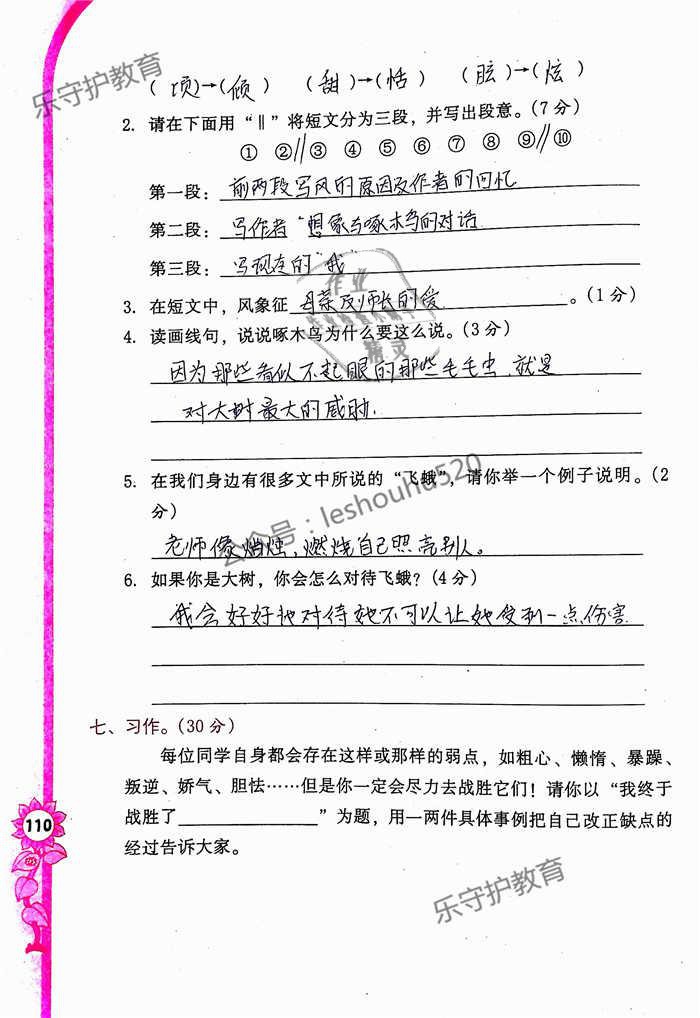 乐守护教育
(顷)→(倾) (甜)→(恬) (眩)→(炫)
2. 请在下面用“‖”将短文分为三段，并写出段意。(7分)
① ②‖③ ④ ⑤ ⑥ ⑦ ⑧ ⑨‖⑩
第一段：前两段写风的原因及作者的回忆
第二段：写作者“想象与啄木鸟的对话
第三段：写现在的“我”
3. 在短文中，风象征 母亲及师长的爱 。(1分)
4. 读画线句，说说啄木鸟为什么要这么说。(3分)
因为那些看似不起眼的那些毛毛虫,就是
对大树最大的威胁.
5. 在我们身边有很多文中所说的“飞蛾”，请你举一个例子说明。(2
分)
公众号：leshouhu520
老师像蜡烛，燃烧自己照亮别人。
6. 如果你是大树，你会怎么对待飞蛾？(4分)
我会好好地对待她不可以让她受到一点伤害
七、习作。(30分)
每位同学自身都会存在这样或那样的弱点，如粗心、懒惰、暴躁、
叛逆、娇气、胆怯……但是你一定会尽力去战胜它们！请你以“我终于
战胜了______________”为题，用一两件具体事例把自己改正缺点的
经过告诉大家。
110
乐守护教育